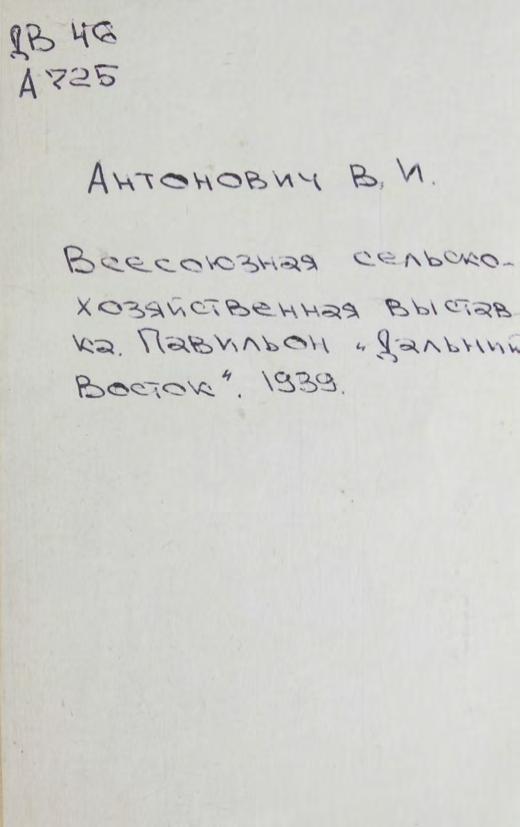 ДВ 46
А 725
Антонович В. И.
Всесоюзная сельско-
хозяйственная выстав
ка. Павильон „Дальний
Восток“. 1939.